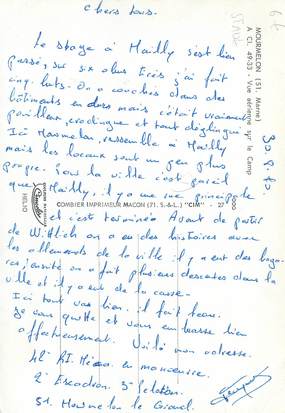 Chers tous.
Le stage à Mailly s'est bien
passé, sur six obus tirés j'ai fait
cinq buts. On a couchés dans des
bâtiments en durs mais c'était vraiment
pouilleux, crodingue et tout déglingué
Ici Mourmelon, ressemble à Mailly
mais les locaux sont un peu plus
propre. Pour la ville c'est pareil
que Mailly, il y a une rue principale
et c'est terminée. Avant de partir
de Wittlich on a eu des histoires avec
les allemands de la ville il y a eut des baga-
res, ensuite on a fait plusieurs descentes dans la
ville et il y a eut de la casse.
Ici tout vas bien. il fait beau.
Je vous quitte et vous embrasse bien
affectueusement. Voilà mon adresse.
42e RI. Méca. en manoeuvre.
2e Escadron. 3e Peloton.
51. Mourmelon le Grand.
30.8.70.
MOURMELON (51. Marne)
A CL. 49-33 - Vue aérienne sur le Camp
COMBIER IMPRIMEUR MACON (71. S.-&-L.) "CIM"
Combier